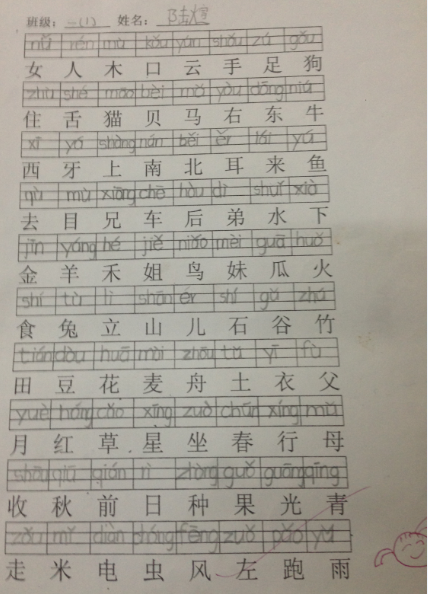 班级：一(1) 姓名：陆煊
nǚ rén mù kǒu yún shǒu zú gǒu
女 人 木 口 云 手 足 狗
zhù shé māo bèi mǎ yòu dōng niú
住 舌 猫 贝 马 右 东 牛
xī yá shàng nán běi ěr lái yú
西 牙 上 南 北 耳 来 鱼
qù mù xiōng chē hòu dì shuǐ xià
去 目 兄 车 后 弟 水 下
jīn yáng hé jiě niǎo mèi guā huǒ
金 羊 禾 姐 鸟 妹 瓜 火
shí tù lì shān ér shí gǔ zhú
食 兔 立 山 儿 石 谷 竹
tián dòu huā mài zhōu tǔ yī fù
田 豆 花 麦 舟 土 衣 父
yuè hóng cǎo xīng zuò chūn xíng mǔ
月 红 草 星 坐 春 行 母
shōu qiū qián rì zhòng guǒ guāng qīng
收 秋 前 日 种 果 光 青
zǒu mǐ diàn chóng fēng zuǒ pǎo yǔ
走 米 电 虫 风 左 跑 雨